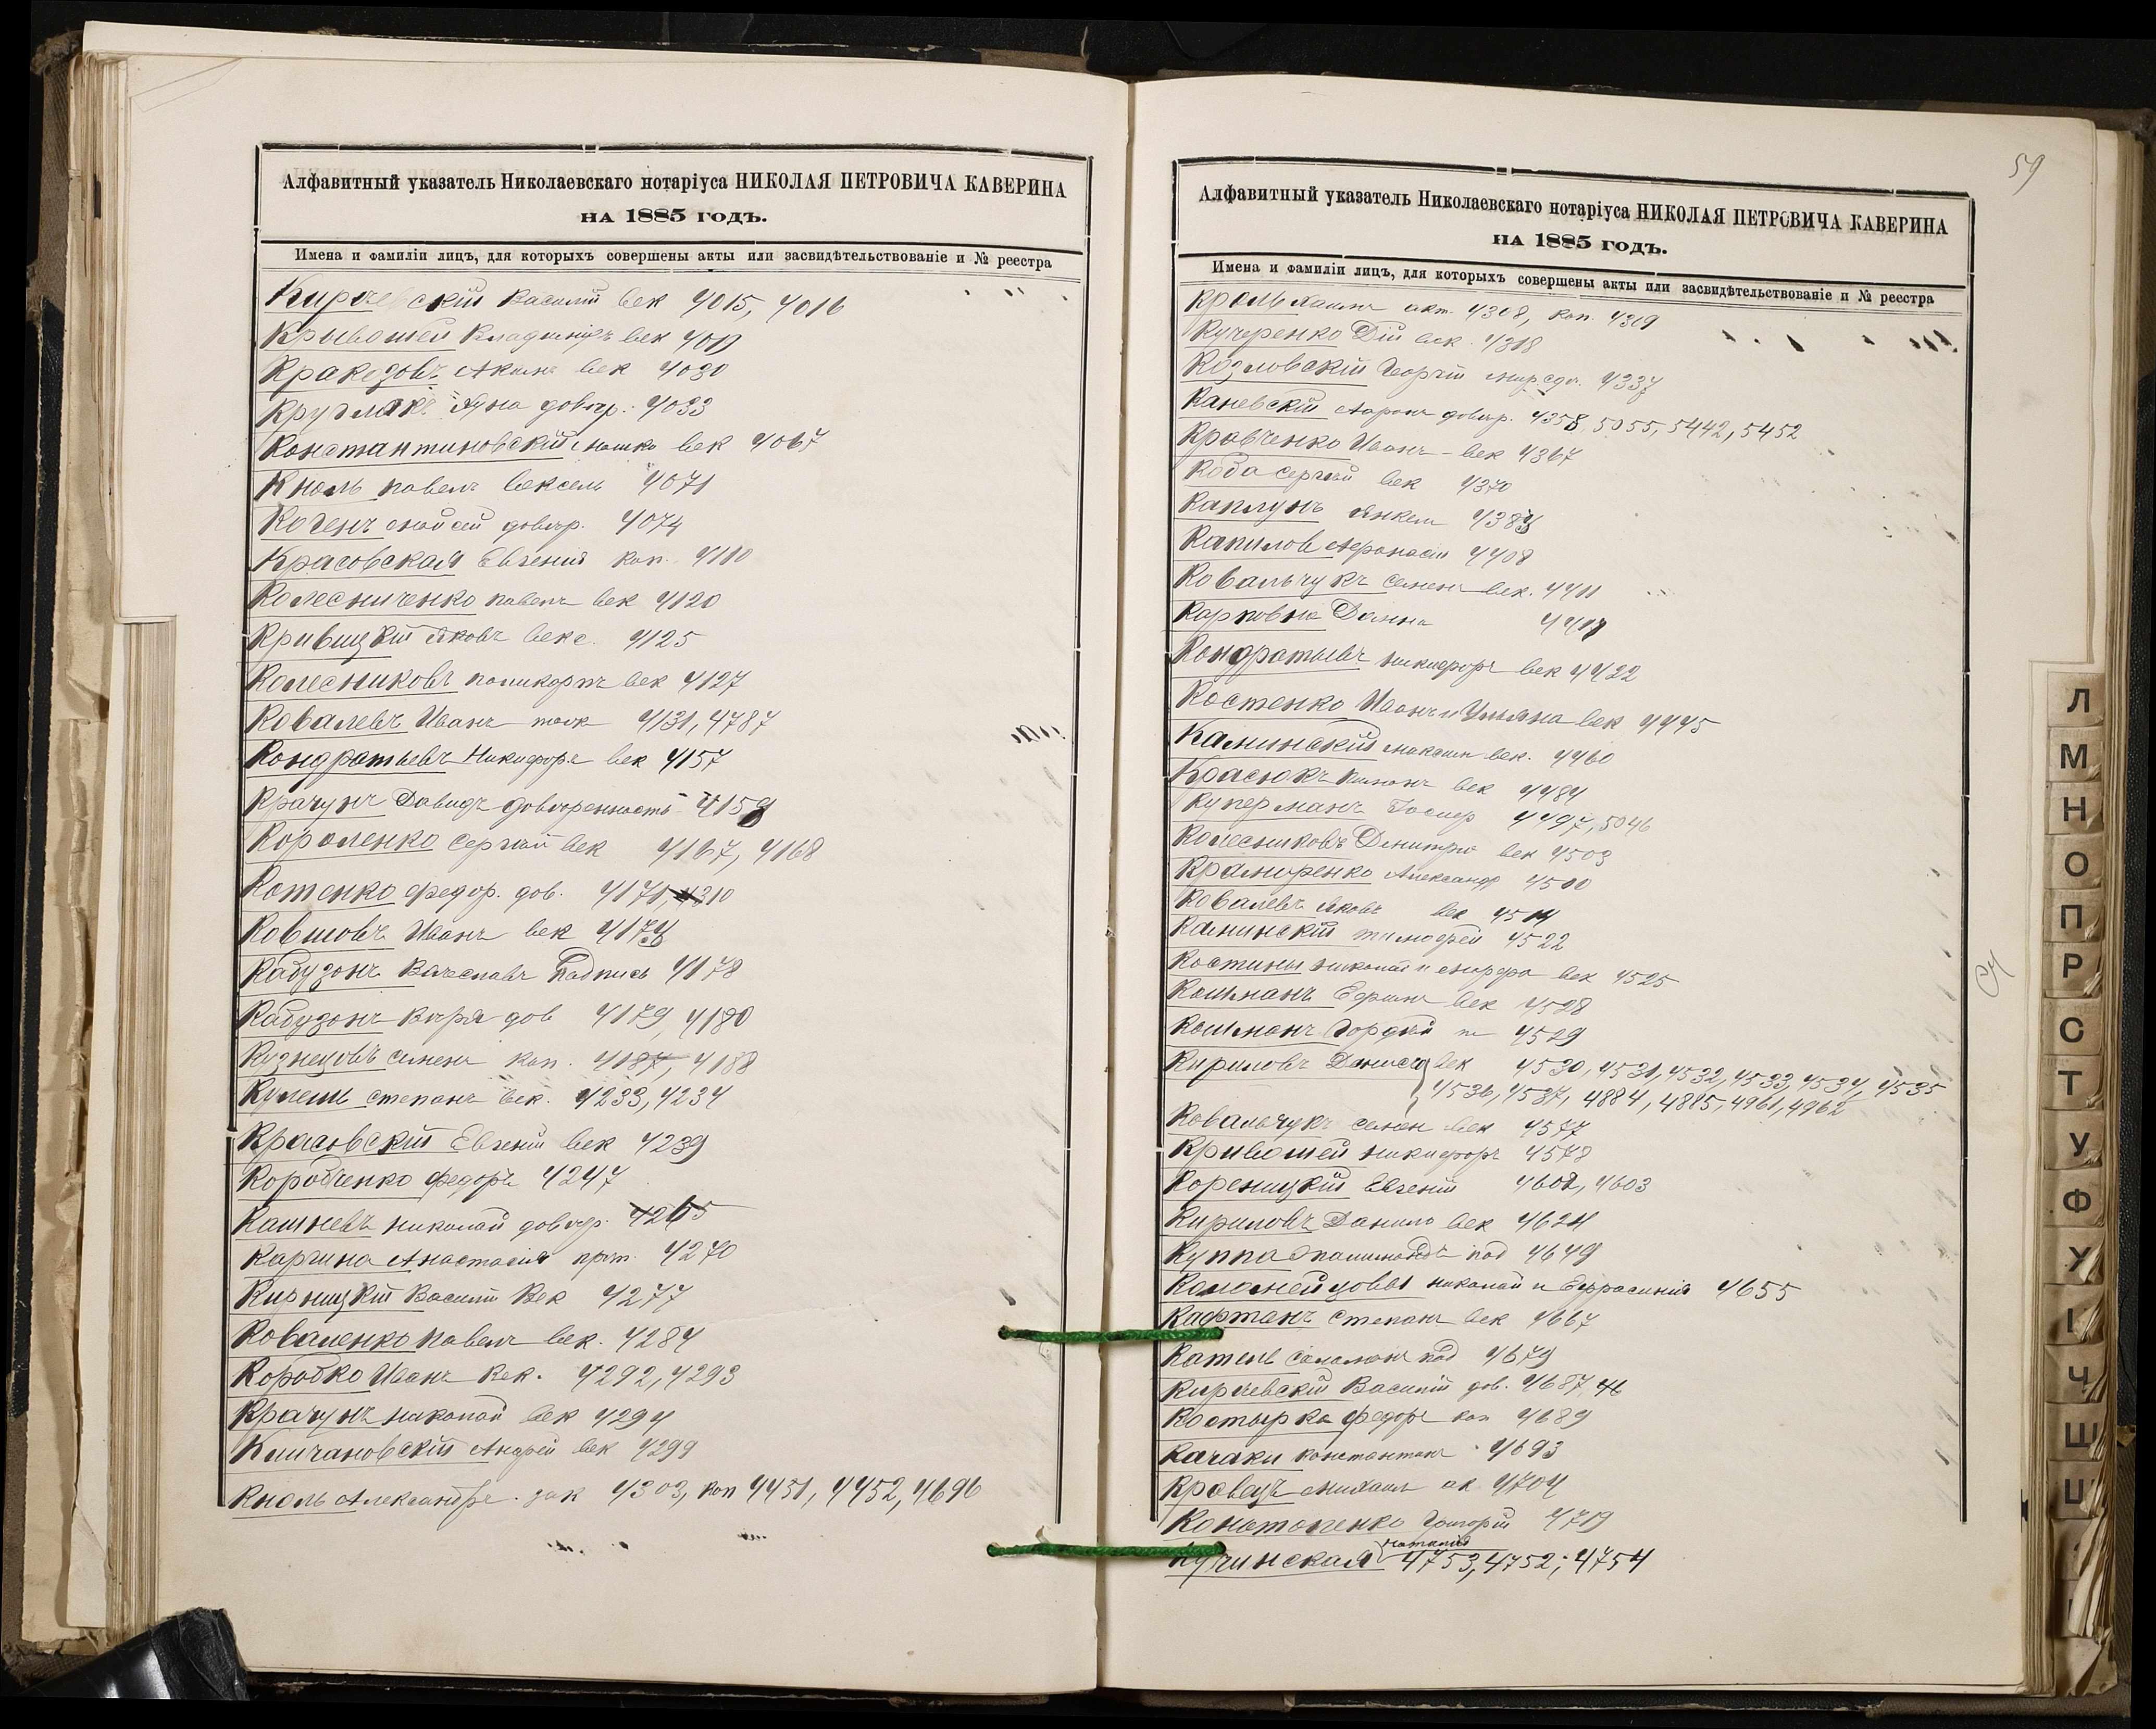 Алфавитный указатель Николаевскаго нотаріуса НИКОЛАЯ ПЕТРОВИЧА КАВЕРИНА
НА 1885 ГОДЪ.
Имена и фамиліи лицъ, для которыхъ совершены акты или засвидѣтельствованіе и № реестра
Кирчевскій Василій век 4015, 4016
Крывошеи Владиміръ век
век 4030
довѣр. 4033
Константиновскій Мошко век 4067
Кноль Павелъ вексель 4071
Когенъ Мойсей довѣр. 4074
Красовская Евгенія коп. 4110
Колесниченко Павелъ век 4120
Кривицкій Яковъ векс. 4125
Колесниковъ Поликарпъ век 4127
Ковалевъ Иванъ 4131, 4787
Кондратьевъ Никифоръ век 4157
Крачунъ Давидъ довѣренность 4159
Короленко Сергѣй век 4167, 4168
Котенко Федор. дов. 4171, 4310
Ковшовъ Иванъ век
Кабузонъ Вячеславъ Подпись 4178
Кабузонъ Вѣра дов 4179, 4180
Кузнецовъ Семенъ коп. 4187, 4188
Кулешъ Степанъ век. 4233, 4234
Красовскій Евгеній век 4239
Коробченко Федоръ 4247
Кашневъ Николай довѣр. 4265
Каргина Анастасія прот. 4270
Кирницкій Василій Век 4277
Коваленко Павелъ век. 4284
Коробко Иванъ Век. 4292, 4293
Крачунъ Николай век 4294
Климановскій Андрей век 4299
Кноль Александръ. 4303, коп 4431, 4452, 4696
59
Алфавитный указатель Николаевскаго нотаріуса НИКОЛАЯ ПЕТРОВИЧА КАВЕРИНА
НА 1885 ГОДЪ.
Имена и фамиліи лицъ, для которыхъ совершены акты или засвидѣтельствованіе и № реестра
Кроль 4308, коп. 4309
Кучеренко Дій век. 4318
Козловскій Георгій 4337
Каневскій Ааронъ довѣр. 4358, 5055, 5442, 5452
Кравченко Иванъ - век 4367
Коба Сергѣй век 4370
Каплунъ Янкель 4383
Капилов Афанасій 4408
Ковальчукъ Семенъ век. 4411
Карповна
Кондратьевъ Никифоръ век 4422
Костенко Иванъ и Ульяна век 4445
Калинскій Максим век. 4460
Красюкъ век 4484
Куперманъ Іосиф 4497, 5046
Колесниковъ Дмитрій век 4503
Крамаренко Александр 4500
Ковалевъ Яковъ век 4514
Калинскій Тимофей 4522
Костины Николай и Марфа век 4525
Кошманъ Ефимъ век 4528
Кошманъ Гордѣй 4529
Кириловъ Данило век 4530, 4531, 4532, 4533, 4534, 4535
4536, 4537, 4884, 4885, 4961, 4962
Ковальчукъ Семен век 4577
Кривошеи Никифоръ 4578
Кореницкій Евгеній 4602, 4603
Кириловъ Данило век 4624
Куппа под 4649
Коломейцовы Николай и Ефросинія 4655
Кафтанъ Степанъ век 4667
Катель Саламонъ под 4679
Кирчевскій Василій дов. 4687
Костырка Федоръ коп 4689
Качаки Константинъ 4693
Кравецъ Михаил 4704
Конотопенко Григорій 4719
Наталія
Кучинская 4753, 4752, 4754
Л
М
Н
О
П
Р
С
Т
У
Ф
Х
Ц
Ч
Ш
Щ